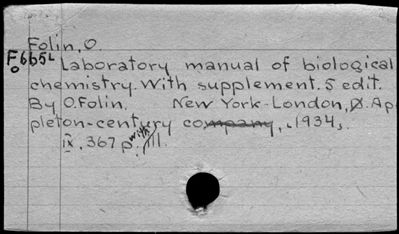 Folin, O.
F665L
o
Laboratory manual of biological
chemistry. With supplement. 5 edit.
By O. Folin. New York-London, D. Ap-
pleton-century company, 1934.
IX, 367 p. with ill.